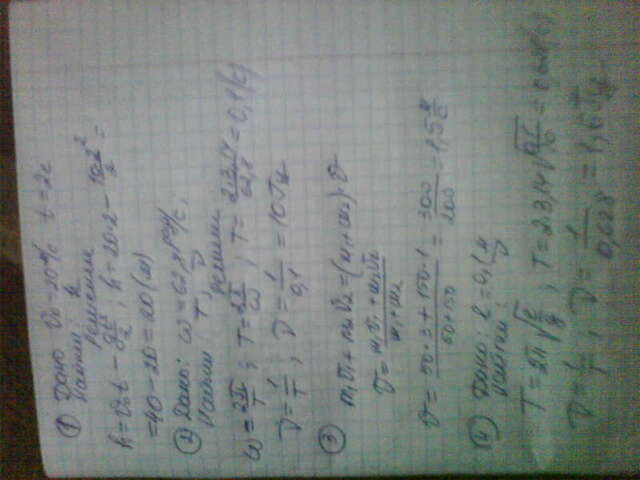 ① Дано V₀=20м/с t=2с
Найти: h
Решение
h=V₀t-gt²/2; h=20·2-10·2²/2=
=40-20=20(м)
② Дано: ω=62,8 рад/с,
Найти T, ν
Решение
ω=2π/T; T=2π/ω; T=2·3,14/62,8=0,1(с)
ν=1/T; ν=1/0,1=10Гц
③ m₁v₁+m₂v₂=(m₁+m₂)·v
v=m₁v₁+m₂v₂/m₁+m₂
v=50·3+150·1/50+150=300/200=1,5м/с
④ Дано: l=0,1м
Найти: ν
T=2π√l/g; T=2·3,14√0,1/10=0,628(с)
ν=1/T; ν=1/0,628=1,6Гц